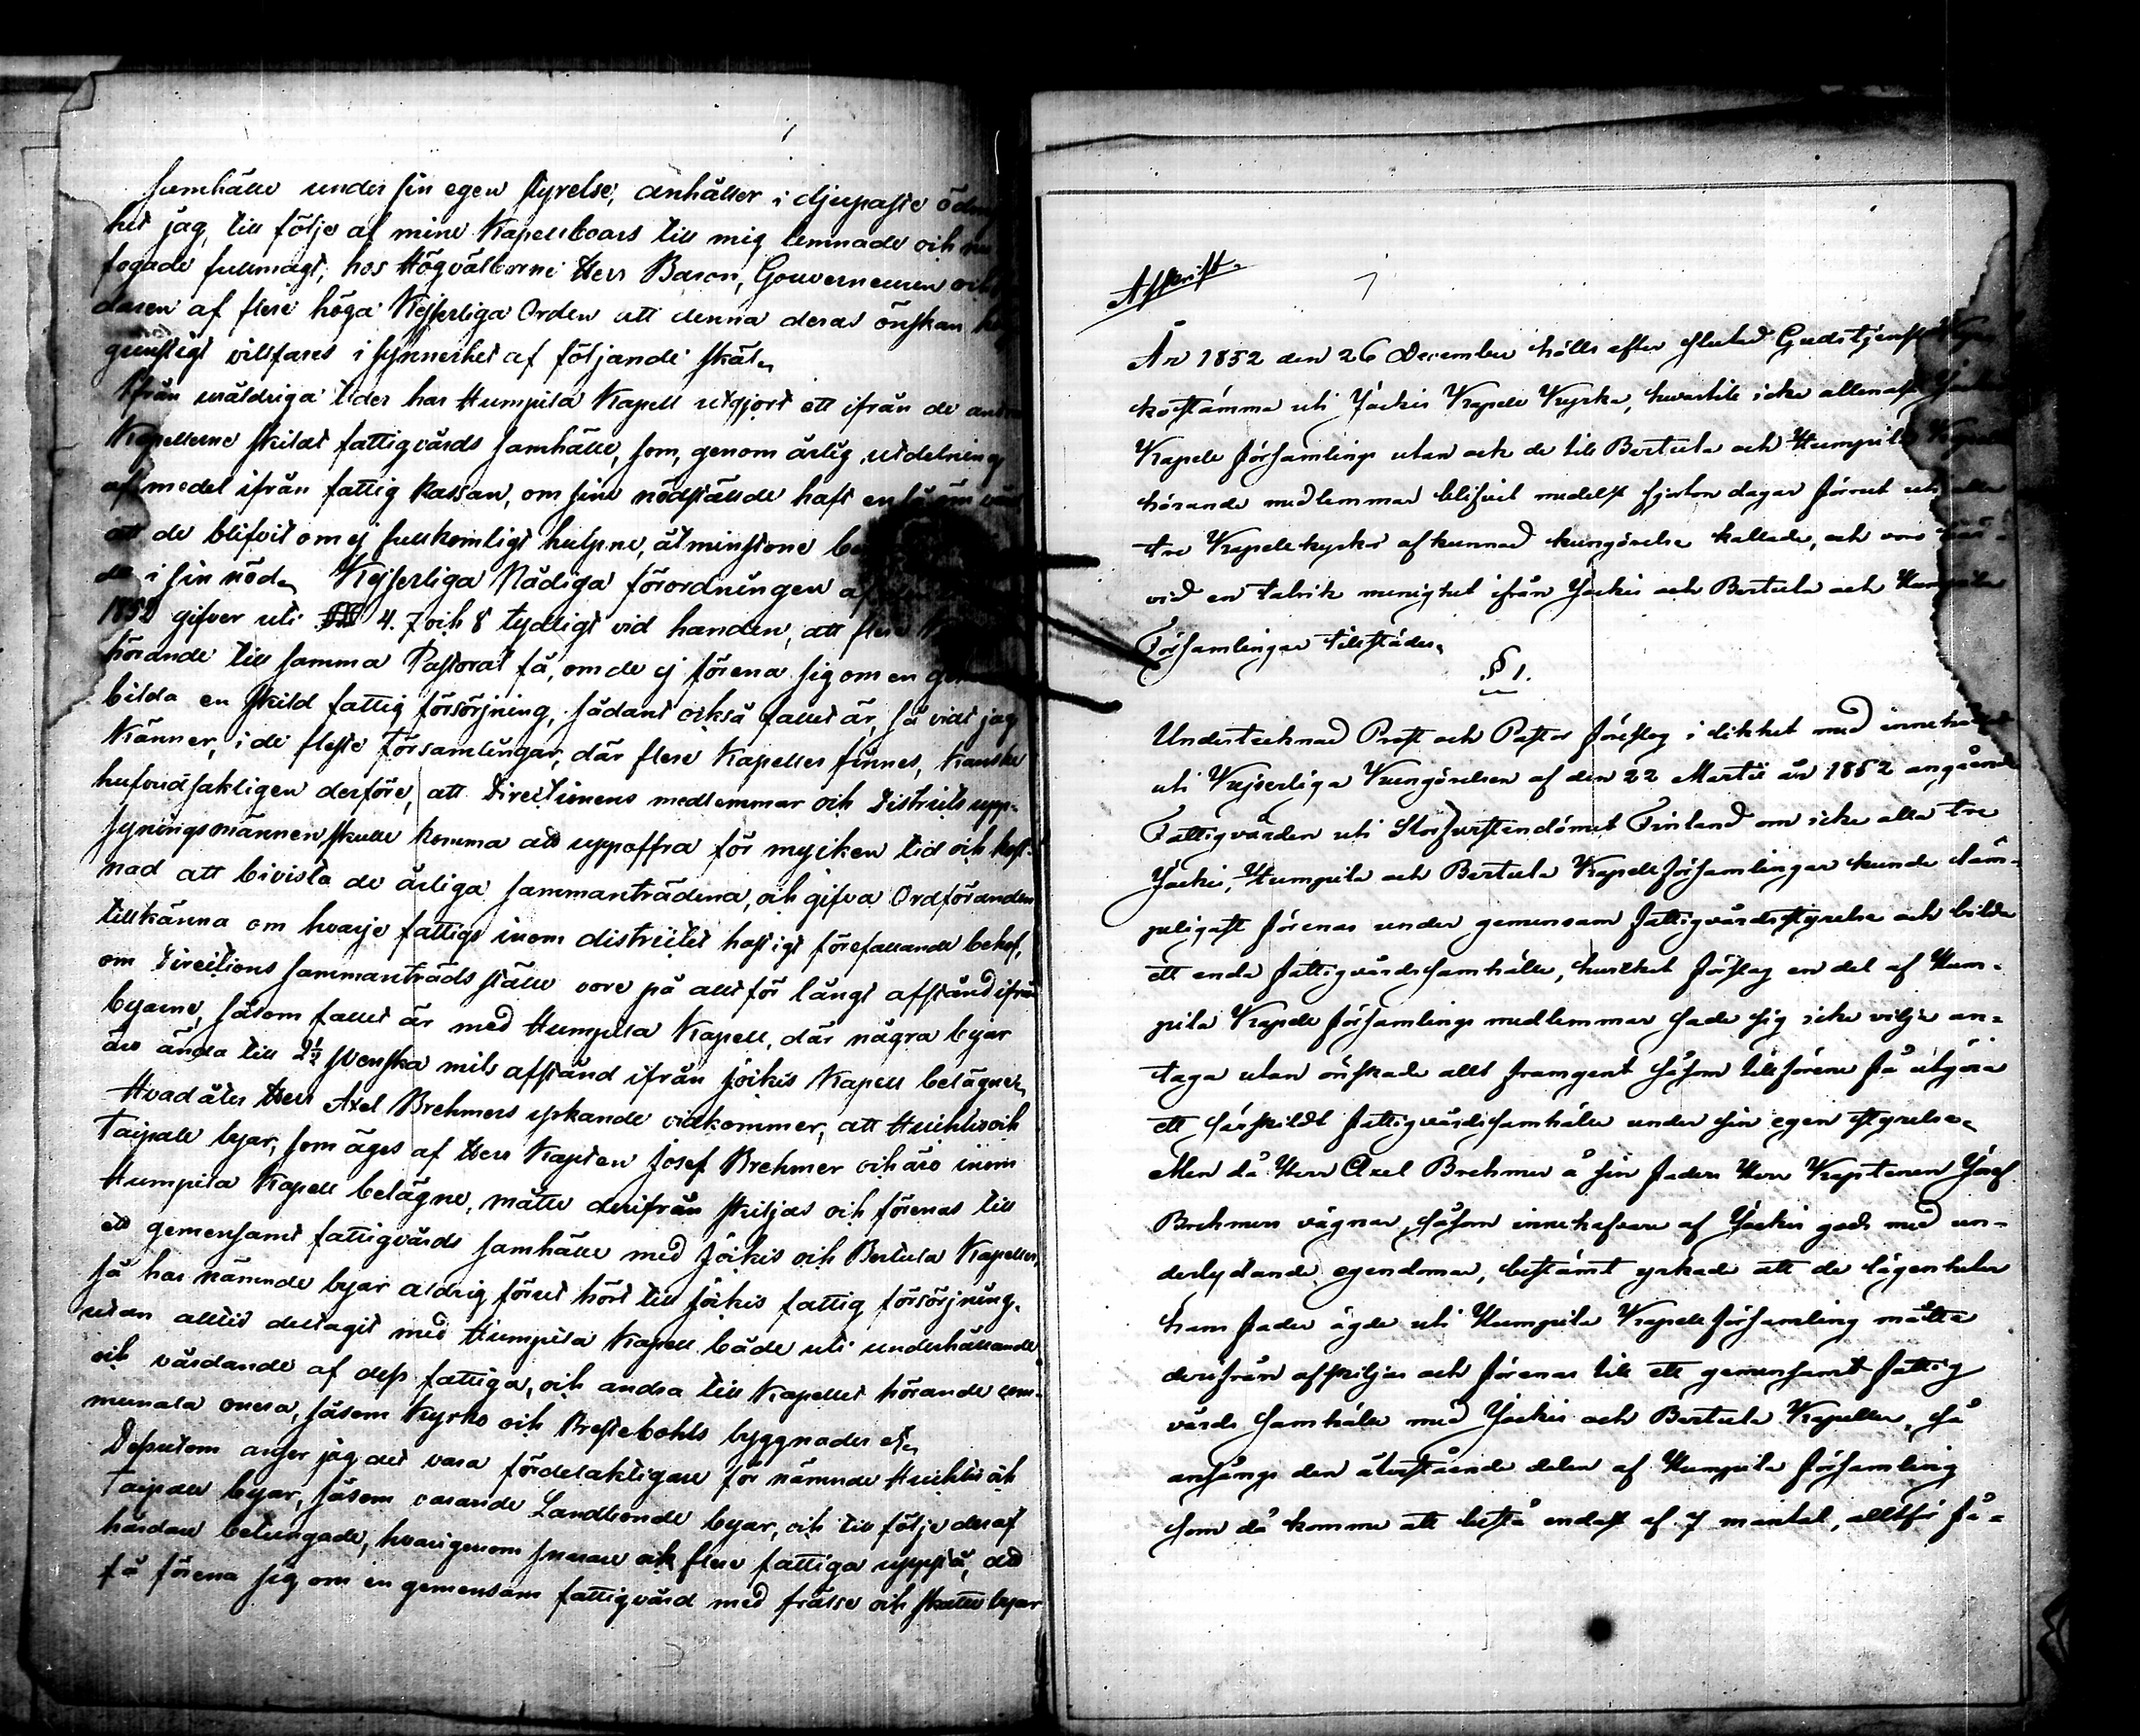 samhälle under sin egen styrelse, anhåller i djupaste ödmj
het jag, till följe af mine Kapellboars till mig lemnade och
fogade fullmagt, hos Högvälborne Herr Baron, Gouverneuren och
daren af flere höga Kejserliga Orden att denna deras önskan
gunstigt villfares i synnerhet af följande skäl.
Ifrån uråldriga tider har Humpila Kapell utgjort ett ifrån de andra
Kapellerne skildt fattigvårds samhälle, som, genom årlig utdelning
af medel ifrån fattig kassan, om sine nödställde haft en
att de blifvit om ej fullkomligt hulpne, åtminstone
de i sin nöd. Kejserliga Nådiga förordningen af
1852 gifver uti §§ 4. 7 och 8 tydligt vid handen, att flere
hörande till samma Pastorat få, om de ej förena sig om en
bilda en skild fattig försörjning, sådant också fallet är, så vidt jag
känner, i de fleste församlingar, där flere Kapeller finnes, kanske
hufvudsakligen derföre, att Directionens medlemmar och Districts upp-
syningsmännen skulle komma att uppoffra för mycken tid och kost-
nad att bivista de årliga sammanträdena, och gifva Ordföranden
tillkänna om hvarje fattigs inom districtet hastigt förefallande behof,
om Directions sammanträds ställe vore på allt för långt afstånd ifrån
byarne, såsom fallet är med Humpila Kapell, där några byar
äro ända till 2½ Svenska mils afstånd ifrån Jockis Kapell belägne.
Hvad åter Herr Axel Brehmers yrkande vidkommer, att Huhtis och
Taipale byar, som äges af Herr Kapten Josef Brehmer och äro inom
Humpila Kapell belägne, måtte derifrån skiljas och förenas till
ett gemensamt fattigvårds samhälle med Jockis och Bertula Kapeller,
så har nämnde byar aldrig förut hört till Jockis fattig försörjning,
utan alltid deltagit med Humpila Kapell både uti underhållande
och vårdande af dess fattiga, och andra till Kapellet hörande com-
munala onera, såsom Kyrko och Prestebohls byggnader etc.
Dessutom anser jag det vara fördelaktigare för nämnde Huhtis och
Taipale byar, såsom varande Landbonde byar, och till följe deraf
hårdare betungade, hvarigenom snarare och flere fattiga uppstå, att
få förena sig om en gemensam fattigvård med frälse och skatte byar
Afskrift.
År 1852 den 26 December hölls efter slutad Gudstjenst
kostämma uti Jockis Kapell Kyrka, hvartill icke allenast Jockis
Kapell församlings utan ock de till Bertula och Humpila Kapell
hörande medlemmar blifvit medelst fjorton dagar förrut uti alla
tre Kapellkyrkor afkunnad kungörelse kallade, och voro
vid en talrik menighet ifrån Jockis och Bertula och Humpila
Församlingar tillstädes.
§ 1.
Undertecknad Prost och Pastor föreslog i likhet med innehållet
uti Kejserliga Kungörelsen af den 22 Martii år 1852 angående
Fattigvården uti Storfurstendömet Finland om icke alla tre
Jockis, Humpila och Bertula Kapellförsamlingar kunde läm-
peligast förenas under gemensam fattigvårdsstyrelse och bilda
ett enda fattigvårdssamhälle, hvilket förslag en del af Hum-
pila Kapell församlings medlemmar sade sig icke vilja an-
taga utan önskade allt framgent såsom tillförene få utgöra
ett särskildt fattigvårdssamhälle under sin egen styrelse.
Men då Herr Axel Brehmer å sin Faders Herr Kaptenen Josef
Brehmers vägnar, såsom innehafvare af Jockis gods med un-
derlydande egendomar, bestämt yrkade att de lägenheter
hans Fader ägde uti Humpila Kapellförsamling måtte
derifrån afskiljas och förenas till ett gemensamt fattig
vårds samhälle med Jockis och Bertula Kapeller, så
ansågs den återstående delen af Humpila församling
som då komme att bestå endast af 7 mantal, alltför få-